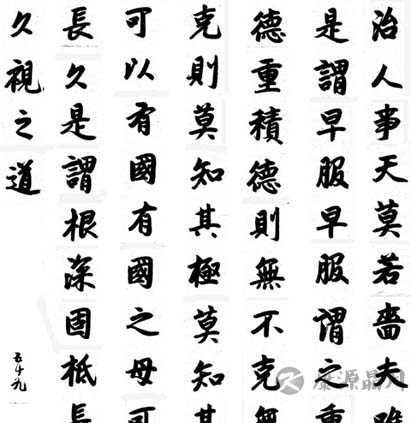 治人事天莫若嗇夫唯
是謂早服早服謂之重
德重積德則無不克無
克則莫知其極莫知其
可以有國有國之母可
長久是謂根深固柢長
久視之道
五十九